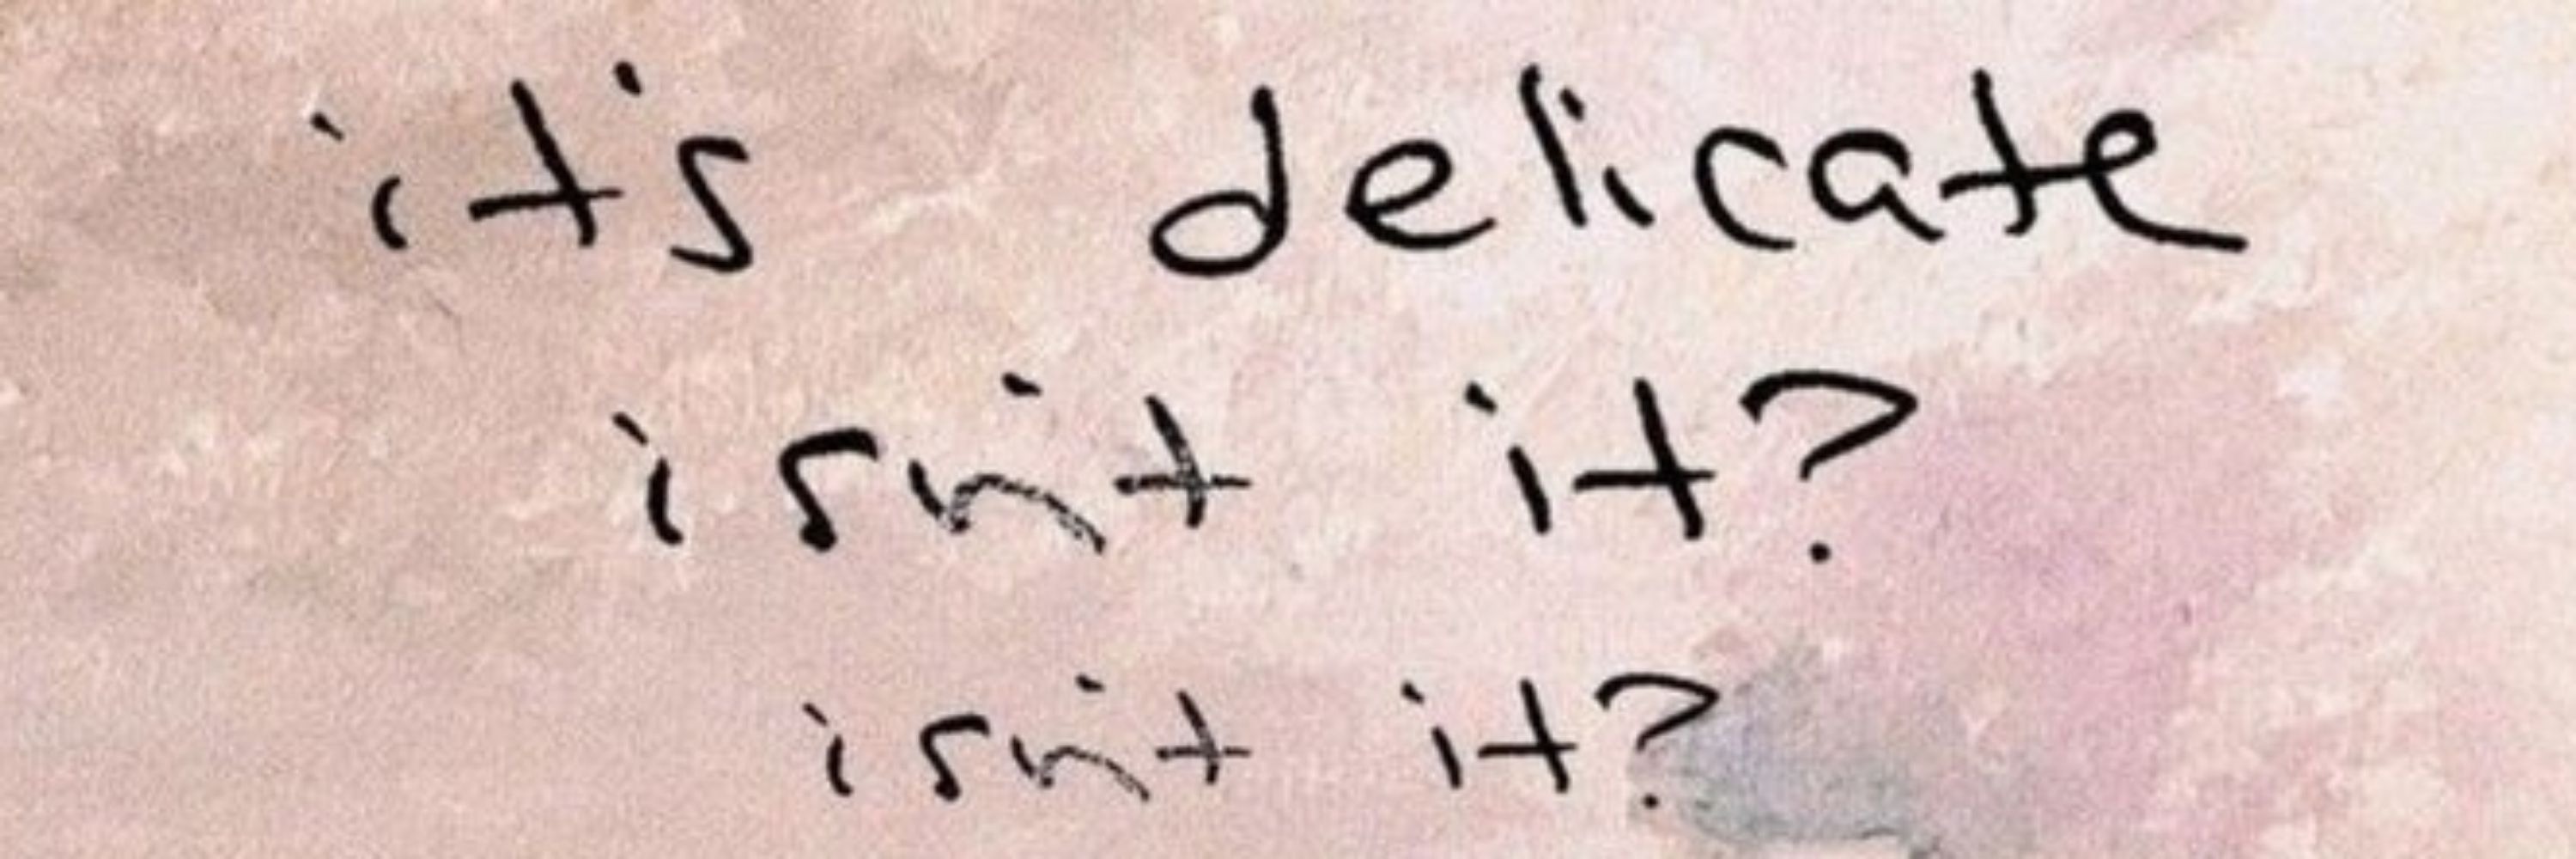 it's delicate
isn't it?
isn't it?